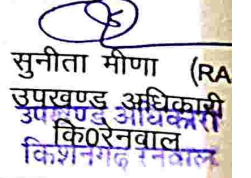 सुनीता मीणा (RA
उपखण्ड अधिकारी
उपखण्ड अधिकारी
कि0रेनवाल
किशनगढ रेनवाल